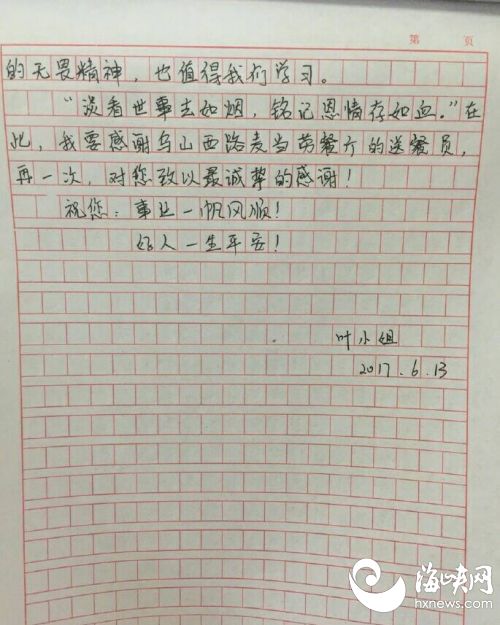 第 页
的无畏精神，也值得我们学习。
“淡看世事去如烟，铭记恩情存如血。”在
此，我要感谢乌山西路麦当劳餐厅的送餐员，
再一次，对您致以最诚挚的感谢！
祝您：事业一帆风顺！
好人一生平安！
叶小姐
2017.6.13
海峡网
hxnews.com